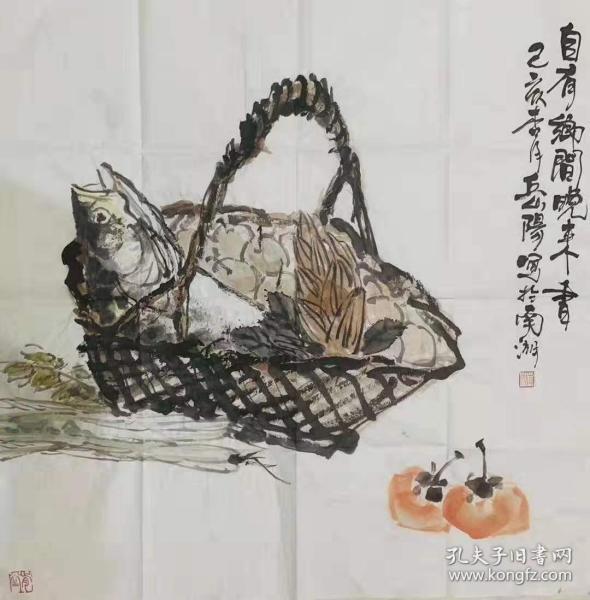 自有鄉間晚来香
己亥春月岳陽寫於南湖
孔夫子旧书网
www.kongfz.com